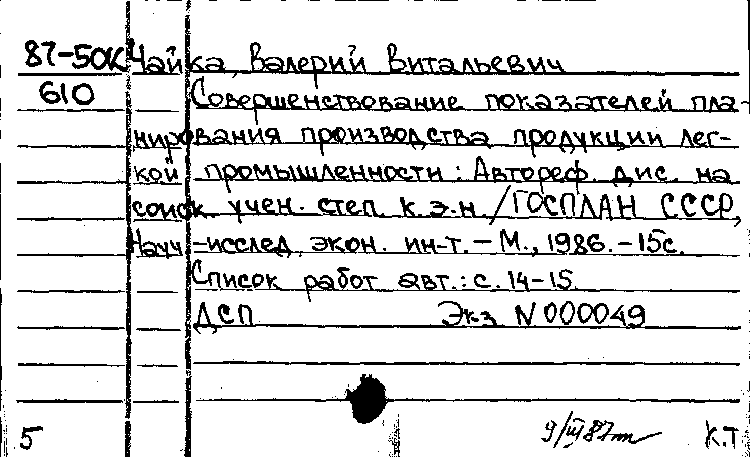 87-50К Чайка, Валерий Витальевич
610 Совершенствование показателей пла-
нирования производства продукции лег-
кой промышленности: Автореф. дис. на
соиск. учен. степ. к.э.н./ГОСПЛАН СССР,
Науч.-исслед. экон. ин-т. - М., 1986. - 15с.
Список работ авт.: с. 14-15.
ДСП Экз N 000049
5 9/III 87 К.Т